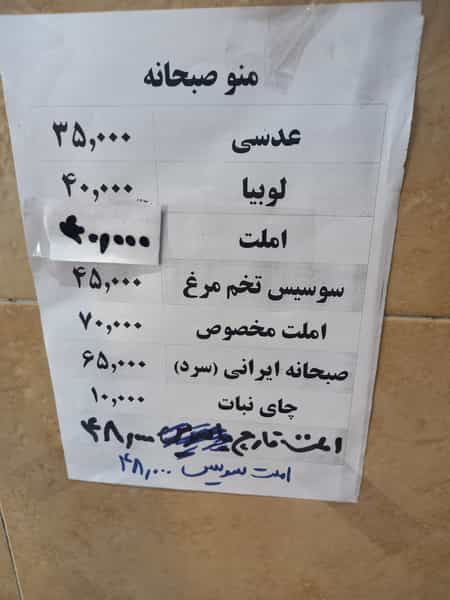 منو صبحانه
عدسی ۳۵,۰۰۰
لوبیا ۴۰,۰۰۰
املت ۴۰,۰۰۰
سوسیس تخم مرغ ۴۵,۰۰۰
املت مخصوص ۷۰,۰۰۰
صبحانه ایرانی (سرد) ۶۵,۰۰۰
چای نبات ۱۰,۰۰۰
املت قارچ ۴۸,۰۰۰
املت سوسیس ۴۸,۰۰۰